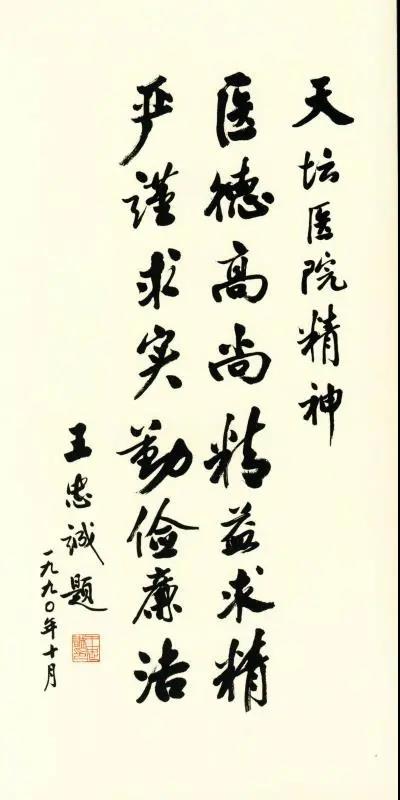 天坛医院精神
医德高尚精益求精
严谨求实勤俭廉洁
王忠诚题
一九九〇年十月